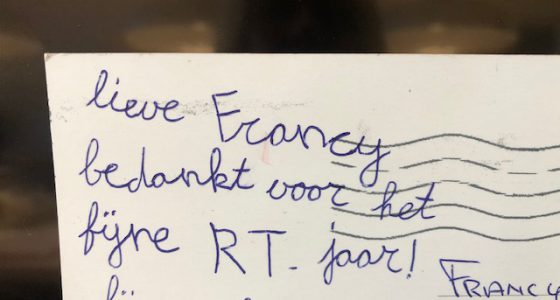 lieve Francy
bedankt voor het
fijne RT. jaar!